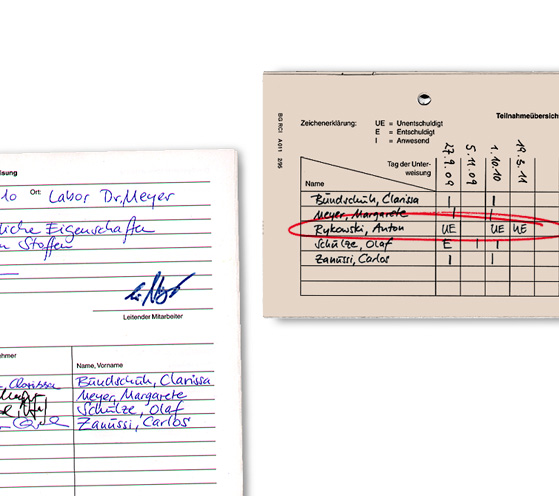 isung
10 Ort: Labor Dr. Meyer
liche Eigenschaften
n Stoffen
Leitender Mitarbeiter
ehmer Name, Vorname
, Clarissa Bundschuh, Clarissa
Meyer, Margarete
Schülze, Olaf
Zanussi, Carlos
BG RCI A011 2/95
Teilnahmeübersich
Zeichenerklärung: UE = Unentschuldigt
E = Entschuldigt
I = Anwesend
Tag der Unter-
weisung
27.9.09 5.11.09 1.10.10
Name
Bundschuh, Clarissa I I
Meyer, Margarete I I
Rykowski, Anton UE UE UE
Schülze, Olaf E I I
Zanussi, Carlos I I